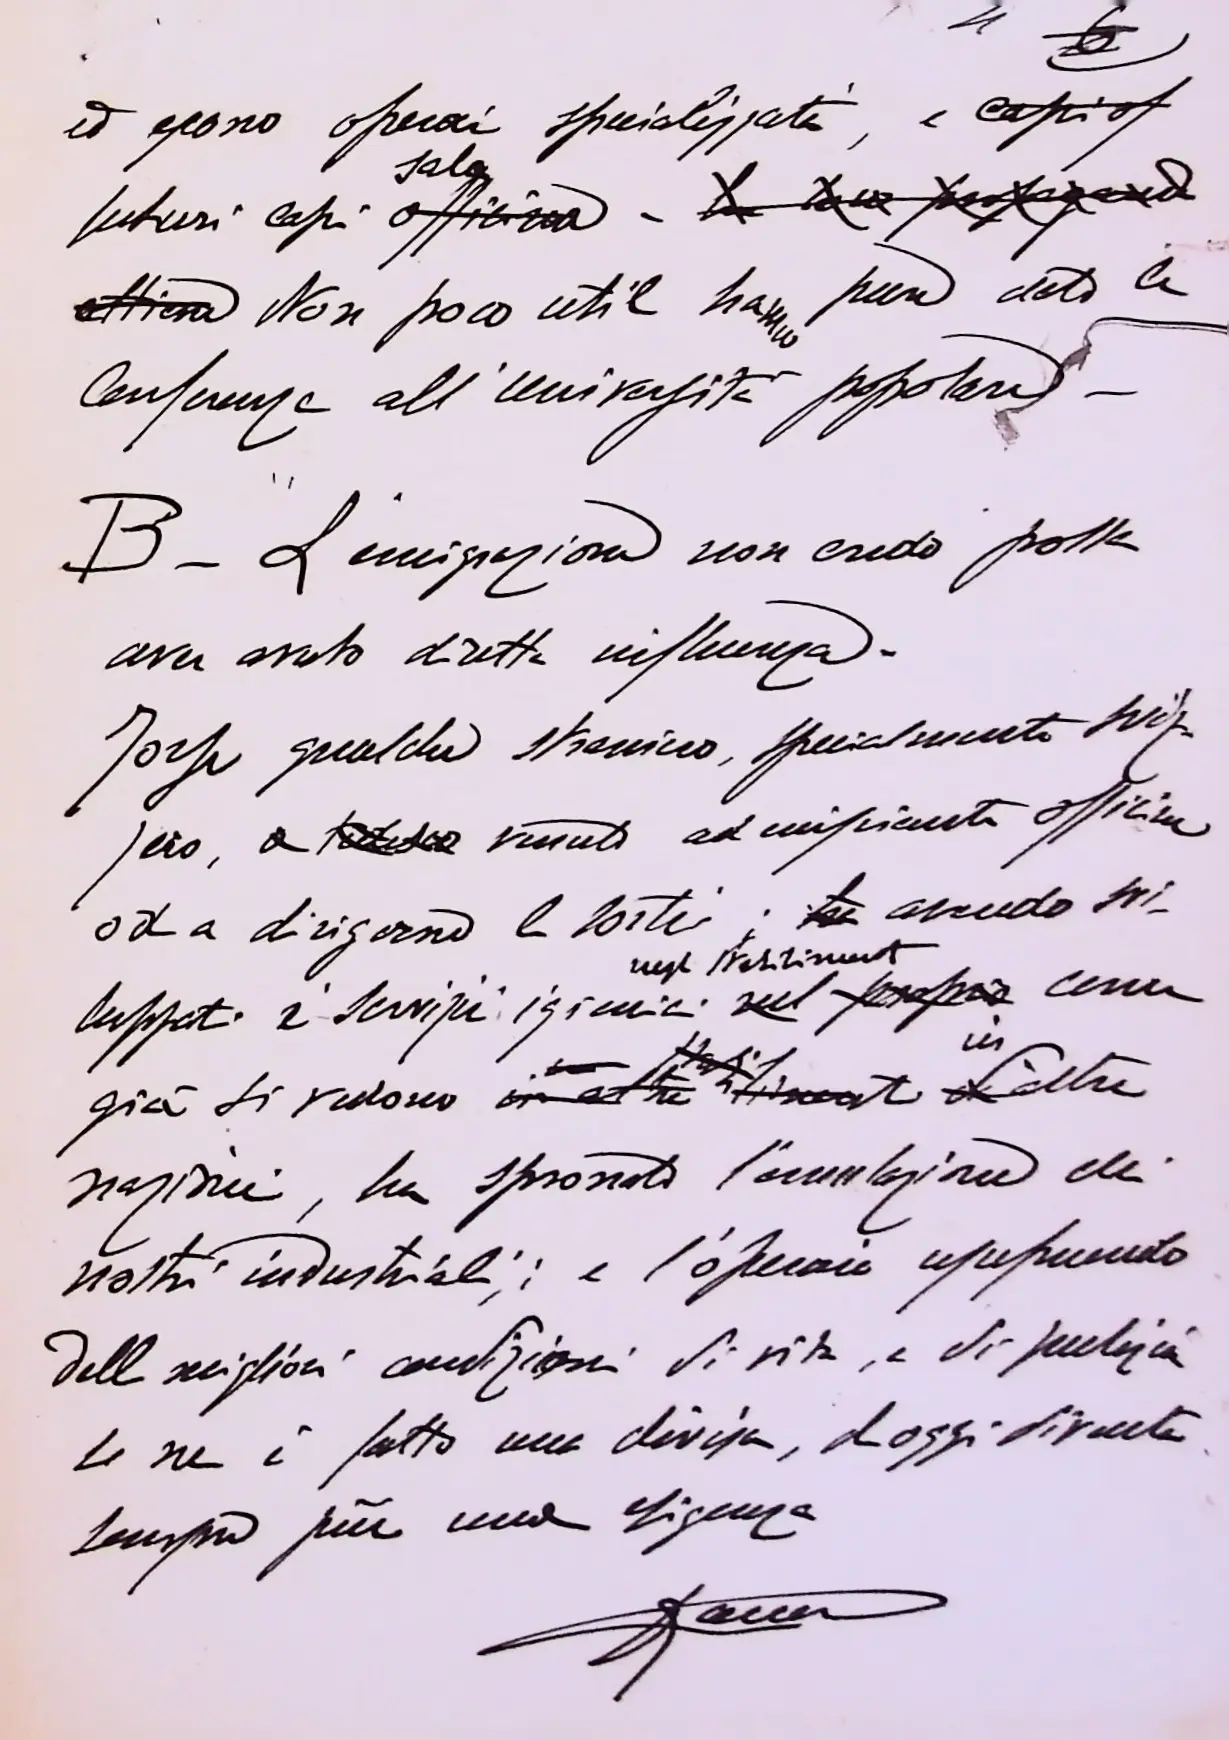 ed escono operai specializzati, e capi of
futuri capi sala officina - la loro propaganda
attiera Non poco utile hanno pure dato le
Conferenze all'università popolare -
B - L'emigrazione non credo possa
aver avuto diretta influenza -
Forse qualche straniero, specialmente sviz-
zero, o tedesco venuto ad impiantar officine
od a dirigerne le sorti; ha avendo svi-
luppati i servizi igienici negli stabilimenti nel proprio come
già si vedono in altri stabiliment in altre
nazioni, ha spronato l'emulazione dei
nostri industriali; e l'operaio apprendendo
delle migliori condizioni di vita, e di pulizia
se ne è fatto una divisa, ed oggi diventa
sempre più una esigenza